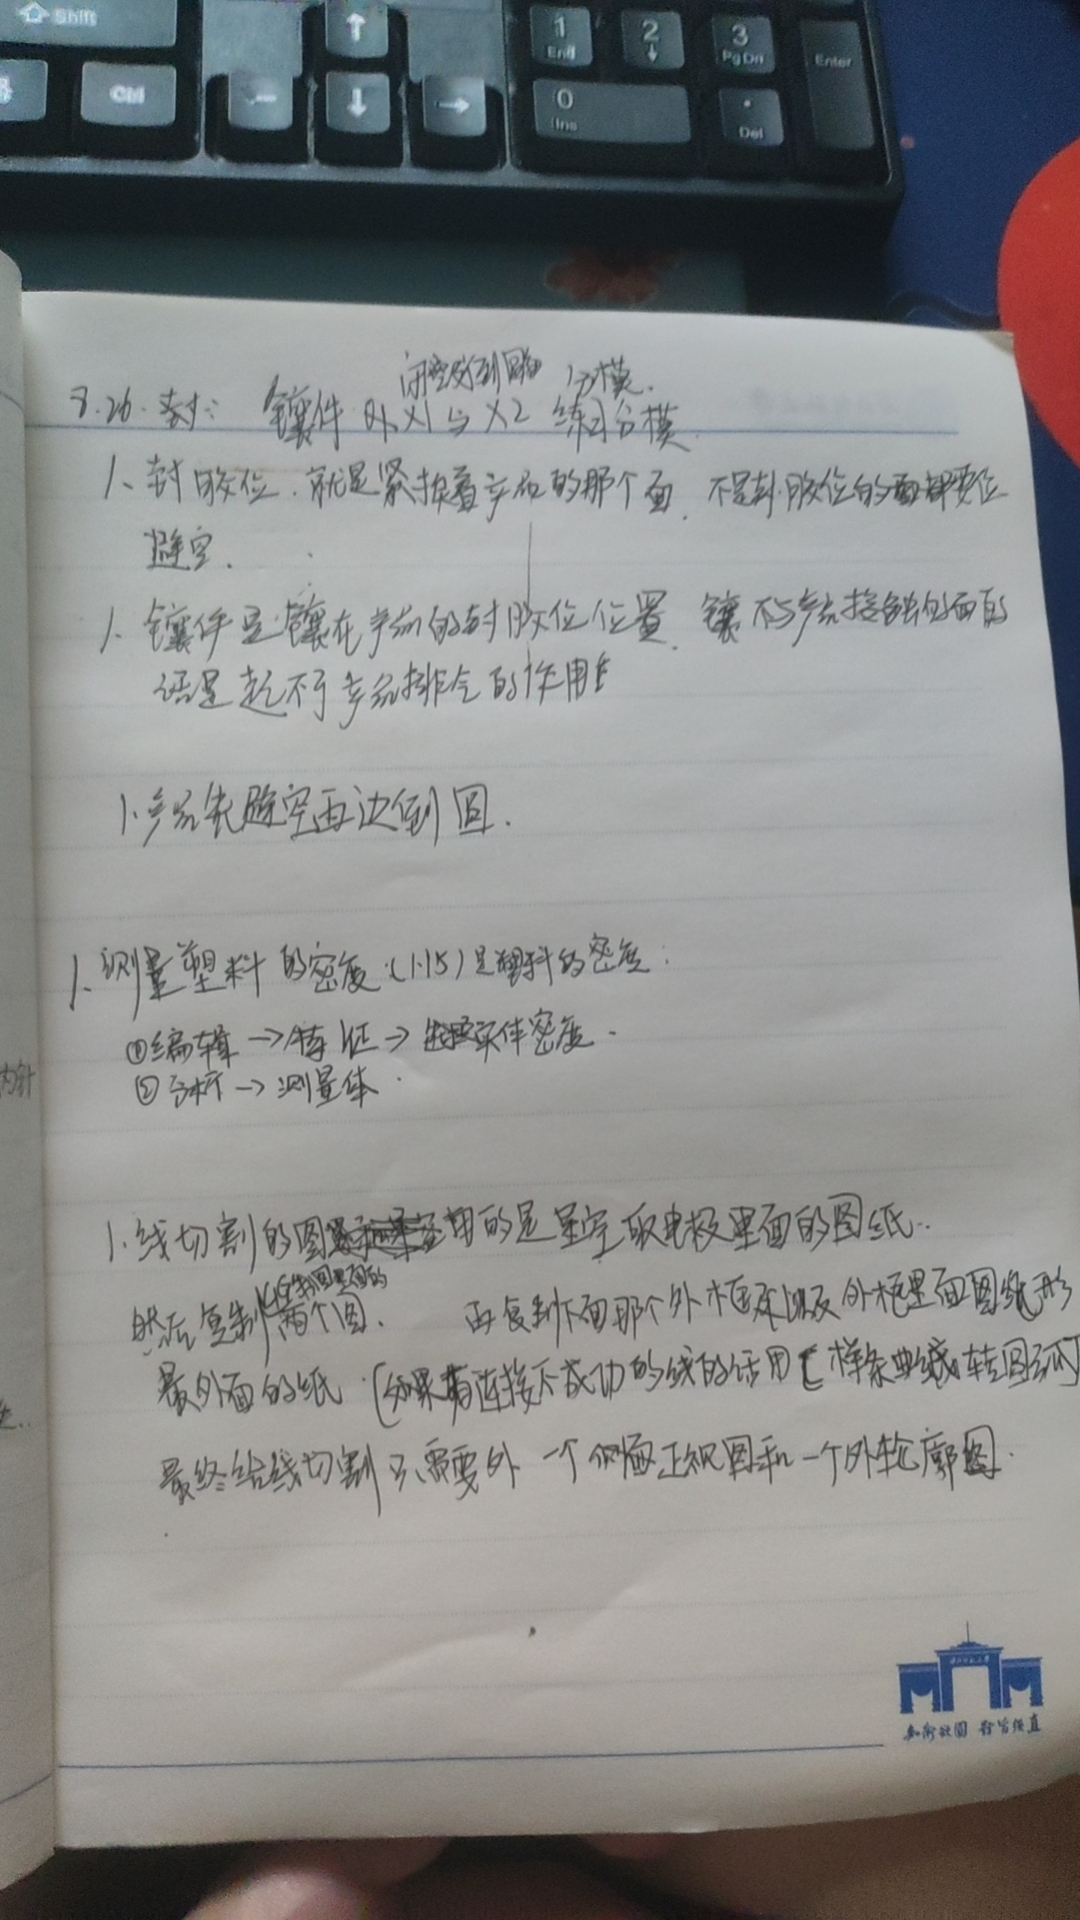 Shift
1 End
2
3 PgDn
Enter
0 Ins
. Del
分模.
8.26. 镶件 X1与X2 练习分模
1、封胶位.就是紧挨着产品的那个面. 不是封胶位的面都要
避空.
1、镶件是镶在产品的封胶位位置. 镶不与产品接触的面的
话是起不了产品排气的作用
1.产品先避空再边倒圆.
1、测量塑料的密度.(1.15)是塑料的密度:
①编辑→特征→实体密度.
②分析→测量体.
内针
1.线切割的图用的是星空 取电极里面的图纸..
里面的
然后复制两个图. 再复制下面那个外框以及外框里面图纸形
最外面的纸.(如果有连接不成功的线的话用[样条曲线转圆弧]
最终给线切割只需要外 一个正视图和一个外轮廓图.